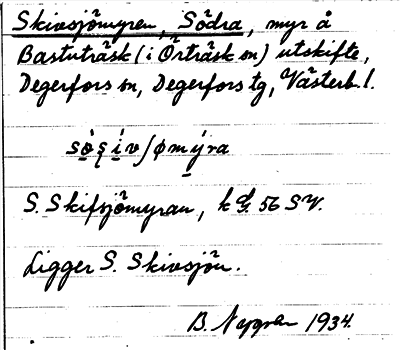 Skivsjömyren, Södra, myr å
Bastuträsk (i Örträsk sn) utskifte,
Degerfors sn, Degerfors tg, Västerb. l.
S. Skifsjömyran, k bl. 56 SV.
Ligger S. Skivsjön.
B. Nygren 1934.